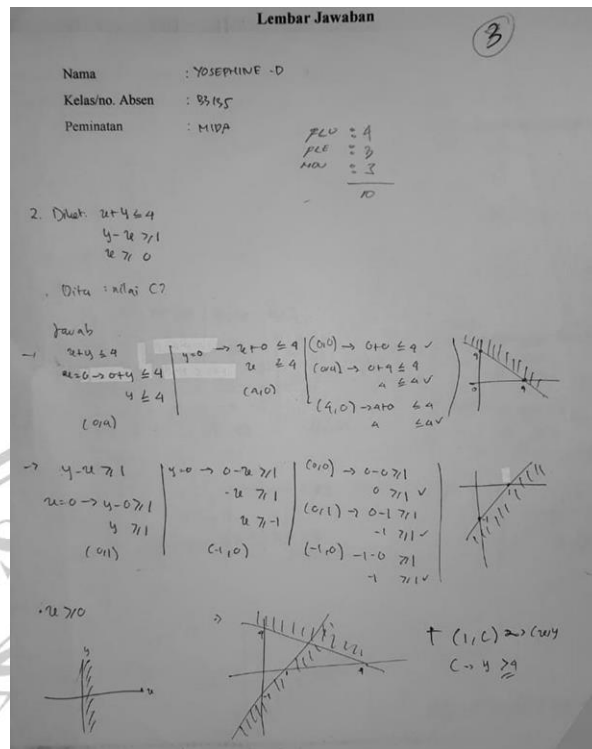 Lembar Jawaban
3
Nama : YOSEPHINE - D
Kelas/no. Absen
Peminatan : MIPA
FLU : 4
FLE : 3
: 3
10
2. Diket: x+y ≤ 4
y-x ≥ 1
x ≥ 0
Dita : nilai C?
Jawab
→ x+y ≤ 4
x=0 → 0+y ≤ 4
y ≤ 4
(0,4)
y=0 → x+0 ≤ 4
x ≤ 4
(4,0)
(0,0) → 0+0 ≤ 4 ✓
(0,4) → 0+4 ≤ 4
4 ≤ 4 ✓
(4,0) → 4+0 ≤ 4
4 ≤ 4 ✓
4
0
4
→ y-x ≥ 1
x=0 → y-0 ≥ 1
y ≥ 1
(0,1)
y=0 → 0-x ≥ 1
-x ≥ 1
x ≥ -1
(-1,0)
(0,0) → 0-0 ≥ 1
0 ≥ 1 ✓
(0,1) → 0-1 ≥ 1
-1 ≥ 1 ✓
(-1,0) -1-0 ≥ 1
-1 ≥ 1 ✓
• x ≥ 0
y
x
⇒
4
4
(1,C)
C → y ≥ 4